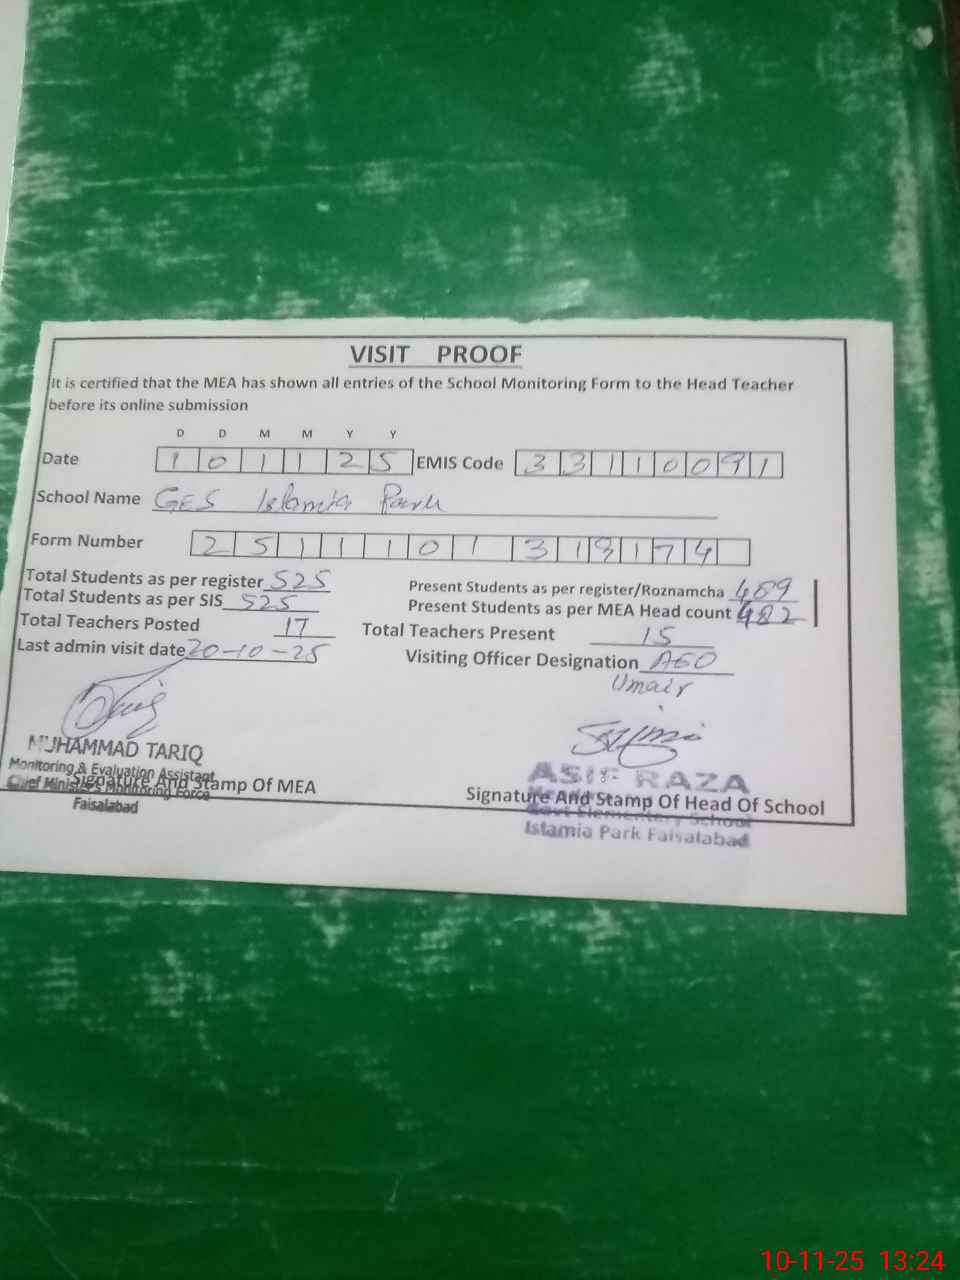 VISIT PROOF
It is certified that the MEA has shown all entries of the School Monitoring Form to the Head Teacher
before its online submission
D D M M Y Y
Date 1 0 1 1 2 5 EMIS Code 3 3 1 1 0 0 9 1
School Name GES Islamia Park
Form Number 2 5 1 1 1 0 1 3 1 9 1 7 4
Total Students as per register 525 Present Students as per register/Roznamcha 489
Total Students as per SIS 525 Present Students as per MEA Head count 482
Total Teachers Posted 17 Total Teachers Present 15
Last admin visit date 20-10-25 Visiting Officer Designation AEO
Umair
MUHAMMAD TARIQ
Monitoring & Evaluation Assistant
Chief Minister's Monitoring Force
Faisalabad
Signature And Stamp Of MEA
ASIF RAZA
Signature And Stamp Of Head Of School
Govt Elementary School
Islamia Park Faisalabad
10-11-25 13:24